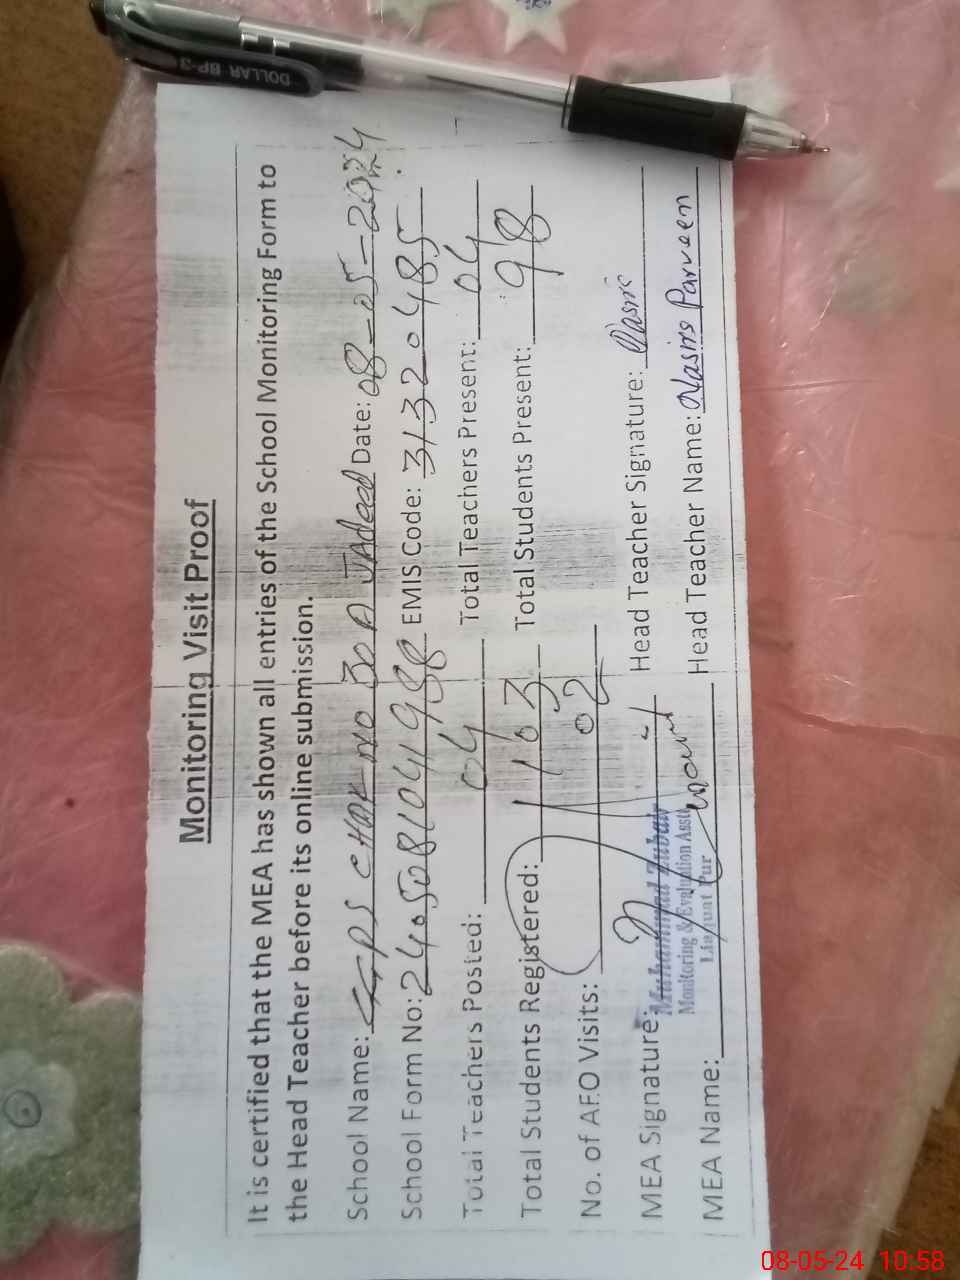 DOLLAR BP-3
Monitoring Visit Proof
It is certified that the MEA has shown all entries of the School Monitoring Form to
the Head Teacher before its online submission.
School Name: GGPS CHAK NO 30 A JAdeed Date: 08-05-2024
School Form No: 240508104198 EMIS Code: 31320485
Total Teachers Posted: 04 Total Teachers Present: 04
Total Students Registered: 103 Total Students Present: 98
No. of AEO Visits: 02
MEA Signature: Head Teacher Signature: Nasim
Muhammad Zubair
Monitoring & Evaluation Asstt
Liaquat Pur
MEA Name: Head Teacher Name: Nasim Parveen
08-05-24 10:58